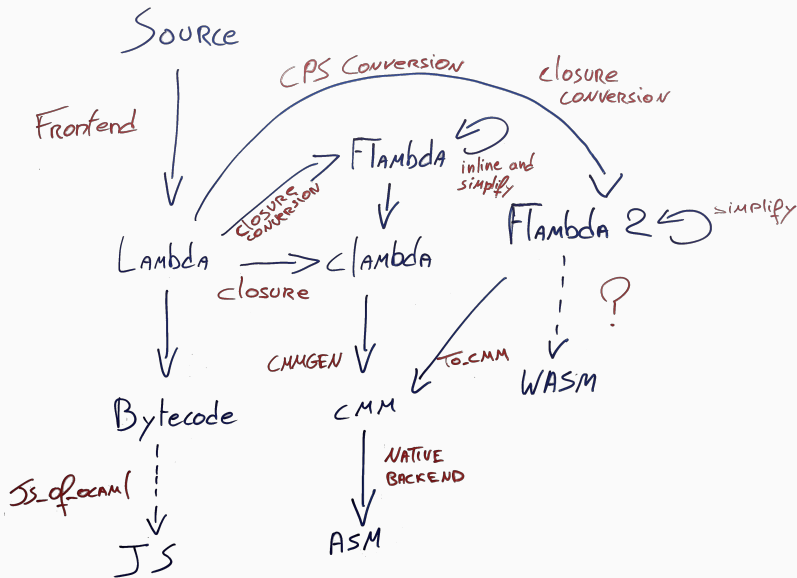 Source
CPS Conversion
closure
conversion
Frontend
Flambda
inline and
simplify
closure
conversion
Flambda 2
simplify
Lambda
closure
Clambda
?
CMMGEN
To_CMM
WASM
Bytecode
CMM
Js_of_ocaml
Native
Backend
JS
ASM